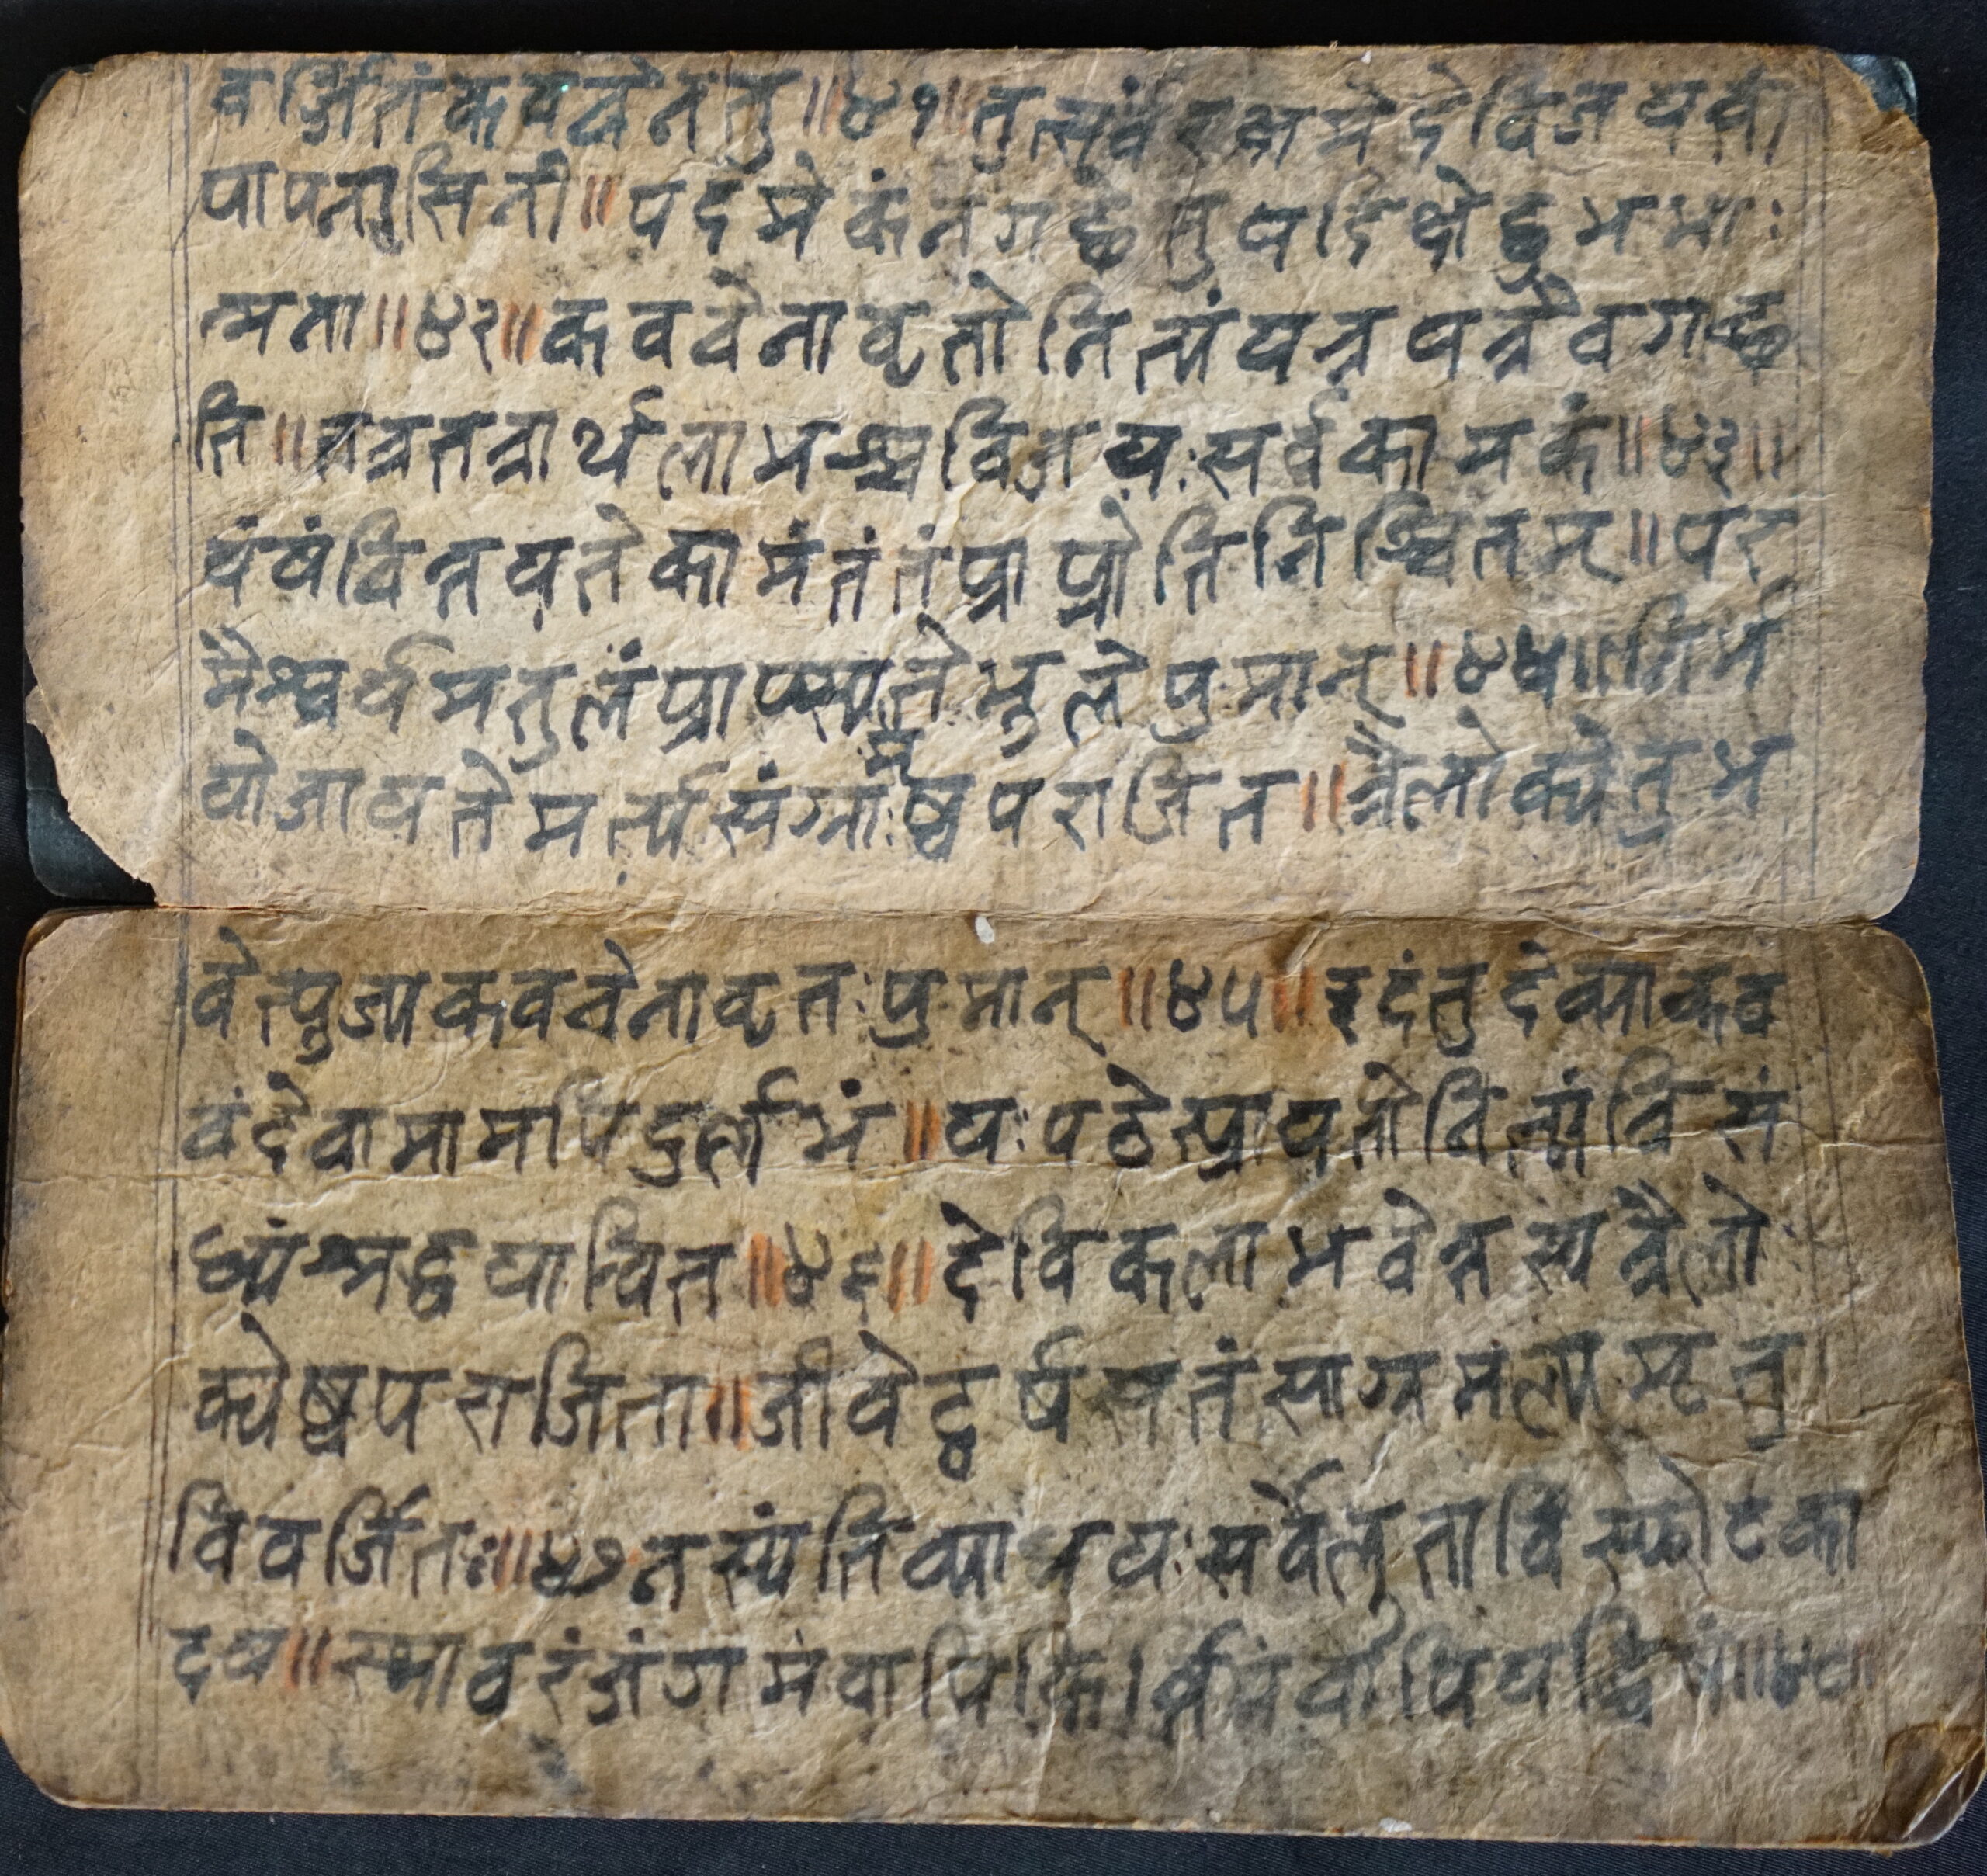 वर्जितं कवचेन तु ॥ ४१ ॥ तत्सर्वं रक्ष मे देवि जयन्ती
पापनासिनी ॥ पदमेकं न गछेतु यदिक्षेछुभमा:
त्मना ॥ ४२ ॥ कवचेनावृतो नित्यं यत्र यत्रैव गच्छ
ति ॥ तत्र तत्रार्थलाभश्च विजयः सर्वकामकं ॥ ४३ ॥
यं यं चिन्तयते कामं तं तं प्राप्नोति निश्चितम् ॥ पर
मैश्वर्यमतुलं प्राप्स्यते भुतले पुमान् ॥ ४४ ॥ निर्भ
यो जायते मर्त्य संग्रामेष्वपराजित ॥ त्रैलोक्ये तु भ
वेत्पुज्य कवचेनावृतः पुमान् ॥ ४५ ॥ इदं तु देव्या कव
चं देवानामपि दुर्लभं ॥ यः पठेत्प्रायतो नित्यं त्रिसं
ध्यं श्रद्धयान्वित ॥ ४६ ॥ देविकला भवेत्तस्य त्रैलो
क्येष्वपराजिता ॥ जीवेद्वर्षसतं साग्रमल्पमृतु
विवर्जितः ॥ ४७ नस्यंति व्याधयः सर्वे लुताविस्फोटका
दय ॥ स्थावरं जंगमं वापि कित्रिमं वापि यद्विषं ॥ ४८ ॥